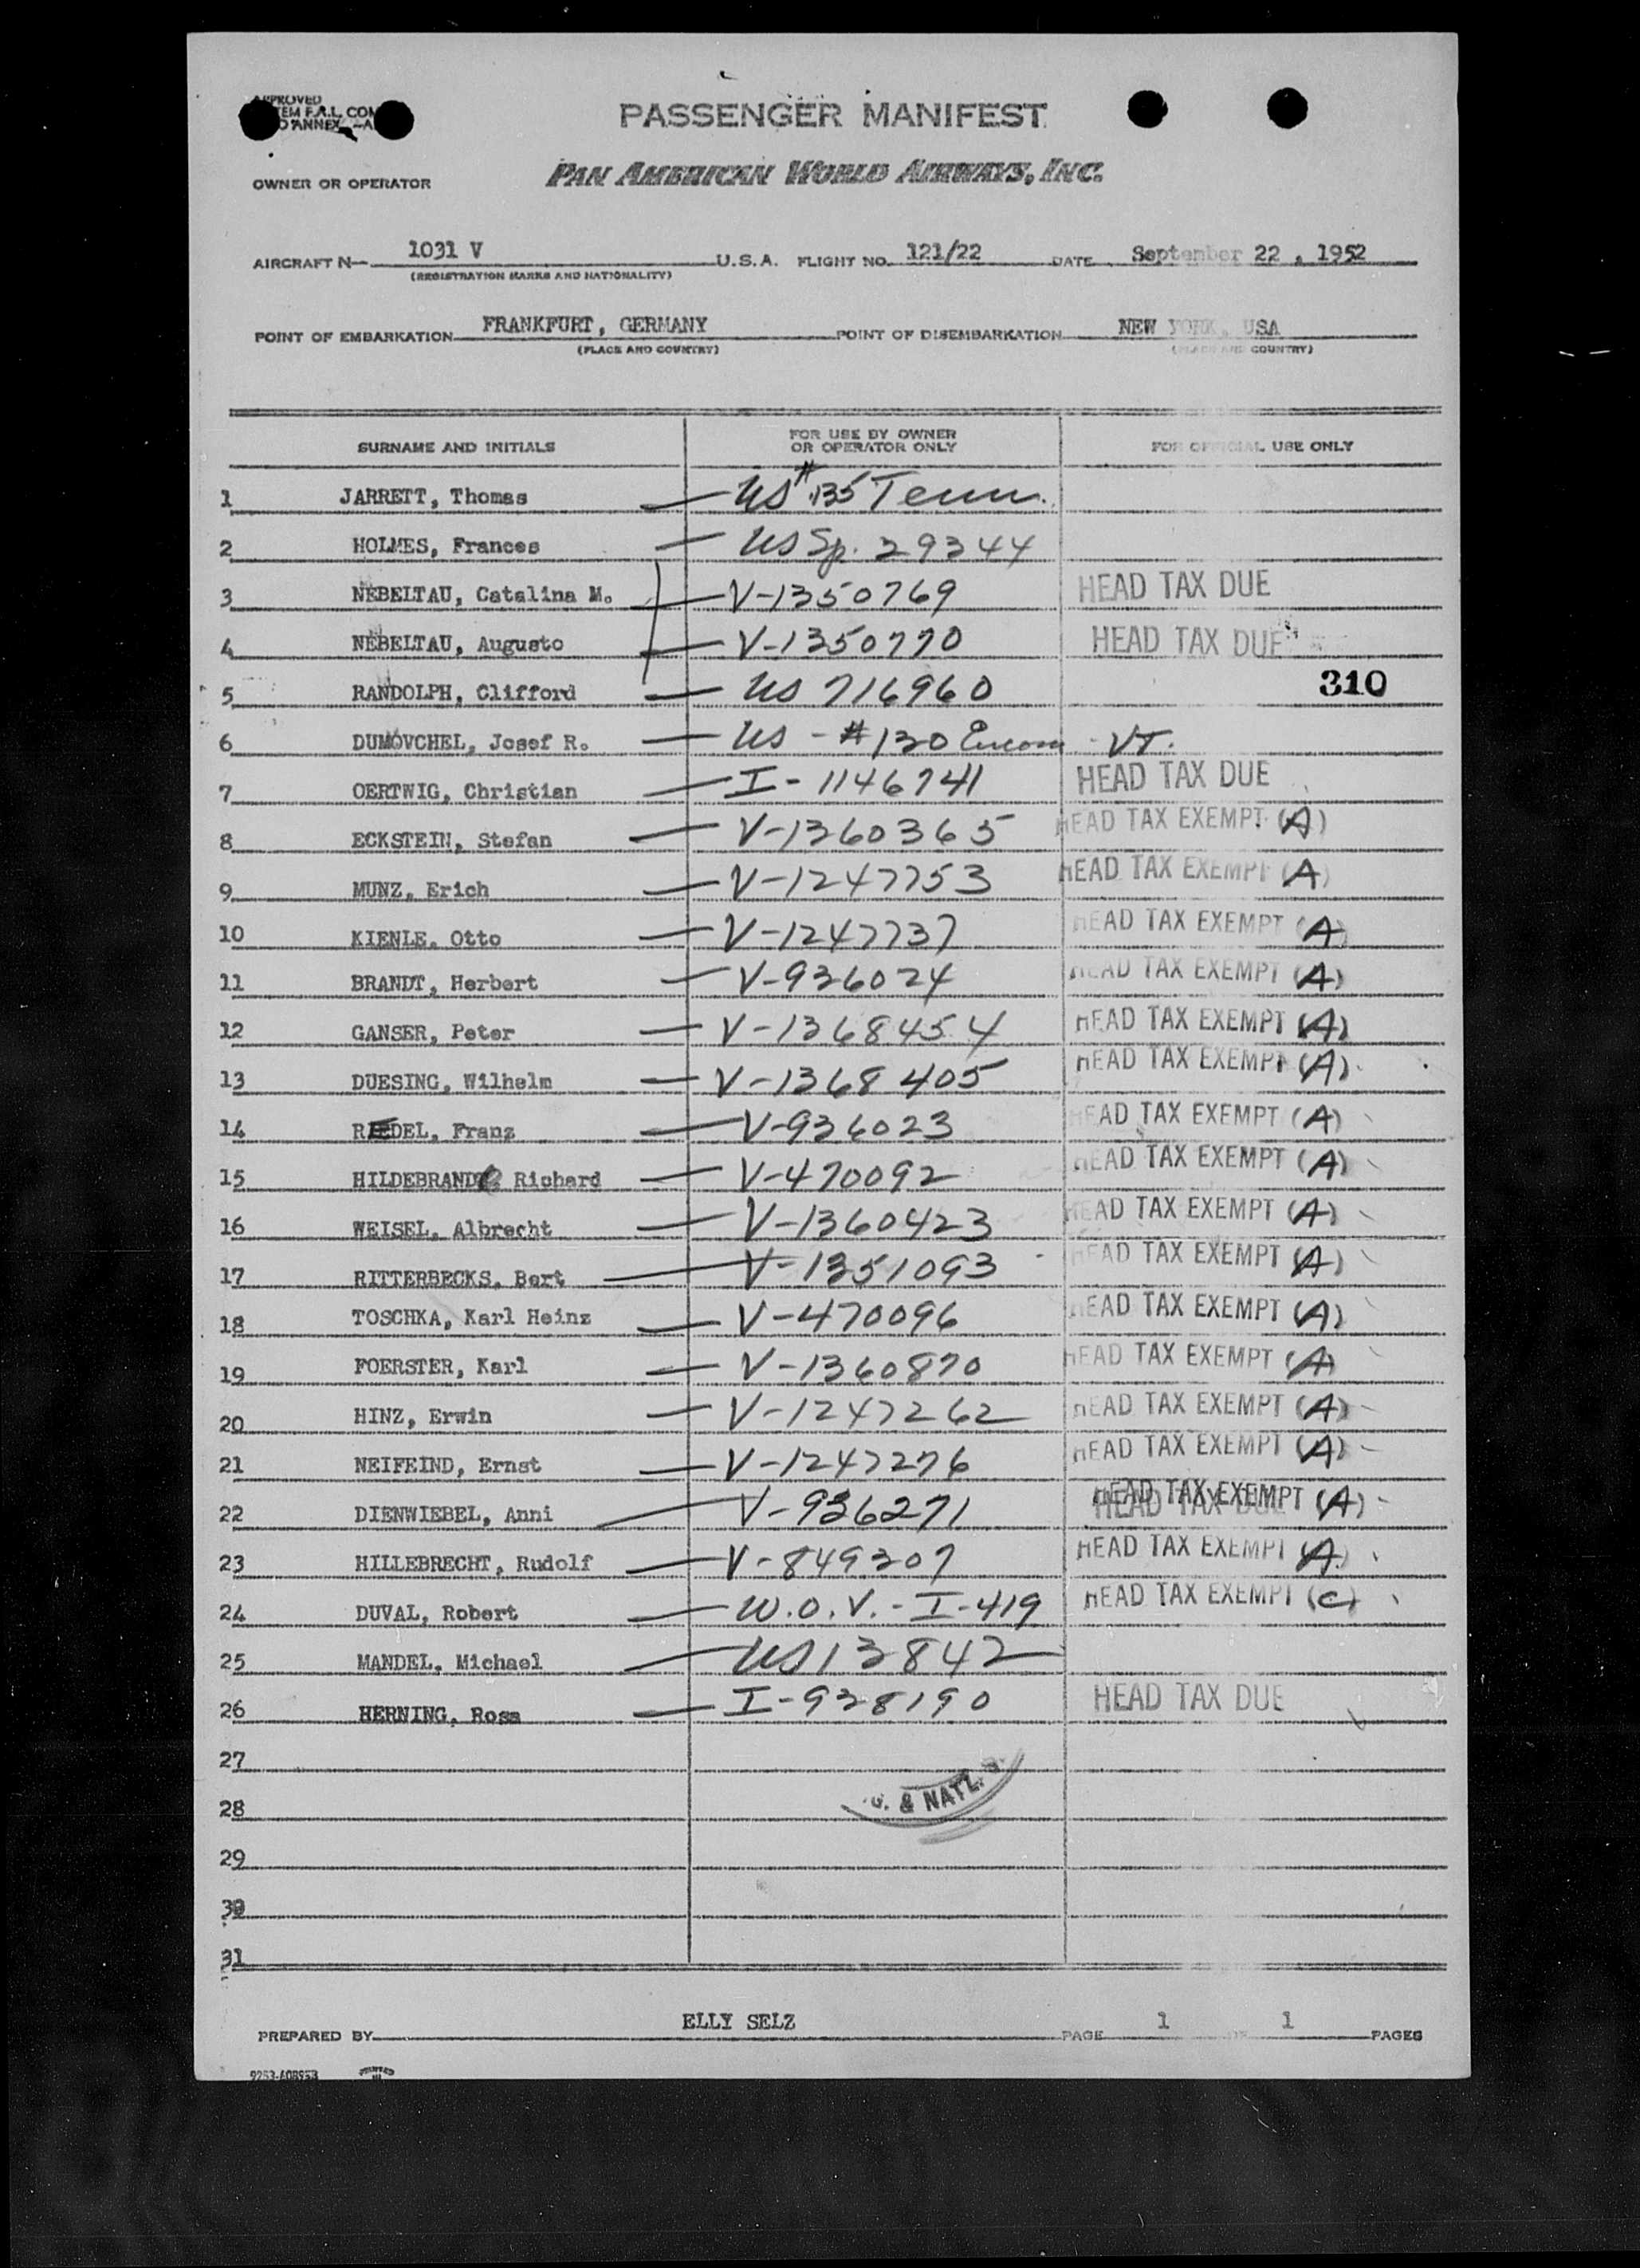 APPROVED
PASSENGER MANIFEST
OWNER OR OPERATOR PAN AMERICAN WORLD AIRWAYS, INC.
AIRCRAFT N— 1031 V U.S.A. FLIGHT NO. 121/22 DATE September 22, 1952
(REGISTRATION MARKS AND NATIONALITY)
POINT OF EMBARKATION FRANKFURT, GERMANY POINT OF DISEMBARKATION NEW YORK, USA
(PLACE AND COUNTRY) (PLACE AND COUNTRY)
SURNAME AND INITIALS FOR USE BY OWNER OR OPERATOR ONLY FOR OFFICIAL USE ONLY
1 JARRETT, Thomas — US #135 Tenn.
2 HOLMES, Frances — US Sp. 29344
3 NEBELTAU, Catalina M. — V-1350769 HEAD TAX DUE
4 NEBELTAU, Augusto — V-1350770 HEAD TAX DUE
5 RANDOLPH, Clifford — US 716960 310
6 DUMOVCHEL, Josef R. — US - #130 VT.
7 OERTWIG, Christian — I-1146741 HEAD TAX DUE
8 ECKSTEIN, Stefan — V-1360365 HEAD TAX EXEMPT (A)
9 MUNZ, Erich — V-1247753 HEAD TAX EXEMPT (A)
10 KIENLE, Otto — V-1247737 HEAD TAX EXEMPT (A)
11 BRANDT, Herbert — V-936024 HEAD TAX EXEMPT (A)
12 GANSER, Peter — V-1368454 HEAD TAX EXEMPT (A)
13 DUESING, Wilhelm — V-1368405 HEAD TAX EXEMPT (A)
14 RIEDEL, Franz — V-936023 HEAD TAX EXEMPT (A)
15 HILDEBRAND Richard — V-470092 HEAD TAX EXEMPT (A)
16 WEISEL, Albrecht — V-1360423 HEAD TAX EXEMPT (A)
17 RITTERBECKS, Bert — V-1351093 HEAD TAX EXEMPT (A)
18 TOSCHKA, Karl Heinz — V-470096 HEAD TAX EXEMPT (A)
19 FOERSTER, Karl — V-1360870 HEAD TAX EXEMPT (A)
20 HINZ, Erwin — V-1247262 HEAD TAX EXEMPT (A)
21 NEIFEIND, Ernst — V-1247276 HEAD TAX EXEMPT (A)
22 DIENWIEBEL, Anni — V-936271 HEAD TAX EXEMPT (A)
23 HILLEBRECHT, Rudolf — V-849307 HEAD TAX EXEMPT (A)
24 DUVAL, Robert — W.O.V.-I-419 HEAD TAX EXEMPT (C)
25 MANDEL, Michael — US 13842
26 HERNING, Rosa — I-928190 HEAD TAX DUE
27
28 & NATZ.
29
30
31
PREPARED BY ELLY SELZ PAGE 1 OF 1 PAGES